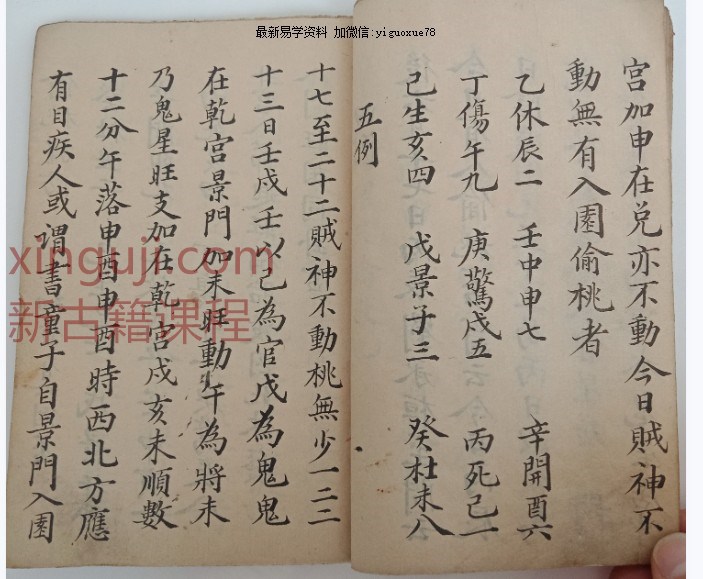 最新易学资料 加微信:yiguoxue78
宫加申在兑亦不動今日賊神不
動無有入園偷桃者
乙休辰二 壬中申七 辛開酉六
丁傷午九 庚驚戍五 丙死己一
己生亥四 戊景子三 癸杜未八
五例
十七至二十二賊神不動桃無少一二二
十三日壬戍壬以己為官戊為鬼鬼
在乾宫景門加未旺動午為將未
乃鬼星旺支加在乾宫戍亥未順數
十二分午落申酉申酉時西北方應
有目疾人或谓書童子自景門入園
xinguji.com
新古籍课程